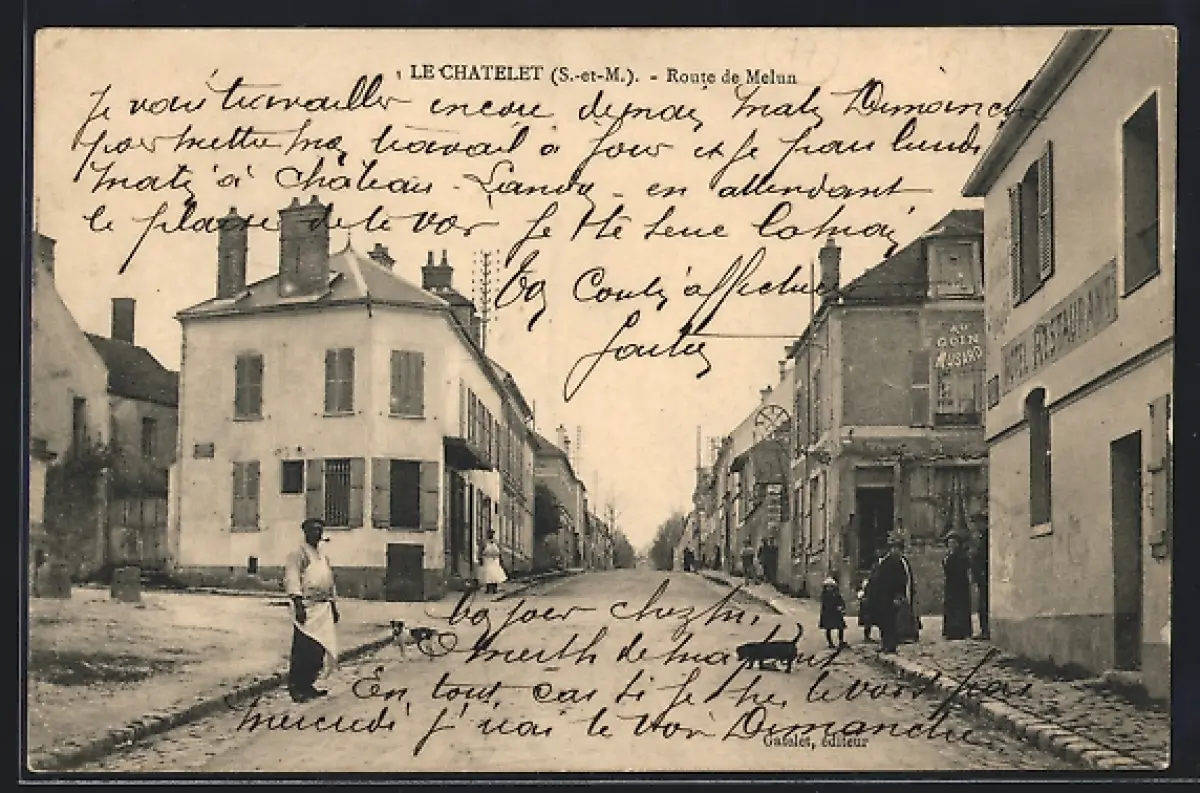 LE CHATELET (S.-et-M.). - Route de Melun
Je vais travailler encore demain matin Dimanche
pour mettre travail à jour et je pars lundi
matin à Château-Landon en attendant
le plaisir de te voir Je te serre la main
Bon Cousin affectueux
AU COIN
MUSARD
HOTEL RESTAURANT
bonjour chez
En tout cas si je ne te vois pas
mercredi j'irai te voir Dimanche
Gatelet, éditeur